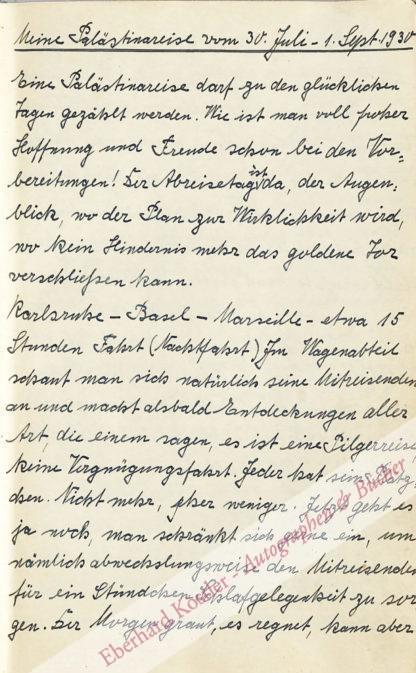 Meine Palästinareise vom 30. Juli - 1. Sept. 1930
Eine Palästinareise darf zu den glücklichen
Tagen gezählt werden. Wie ist man voll froher
Hoffnung und Freude schon bei den Vor-
bereitungen! Der Abreisetag ist da, der Augen-
blick, wo der Plan zur Wirklichkeit wird,
wo kein Hindernis mehr das goldene Tor
verschließen kann.
Karlsruhe - Basel - Marseille - etwa 15
Stunden Fahrt (Nachtfahrt) Im Wagenabteil
schaut man sich natürlich seine Mitreisenden
an und macht alsbald Entdeckungen aller
Art, die einem sagen, es ist eine Pilgerreise
keine Vergnügungsfahrt. Jeder hat sein Plätz-
chen. Nicht mehr, eher weniger. Jetzt geht es
ja noch, man schränkt sich gerne ein, um
nämlich abwechslungsweise den Mitreisenden
für ein Stündchen Schlafgelegenheit zu sor-
gen. Der Morgen graut, es regnet, kann aber
Eberhard Köstler - Autographen & Bücher